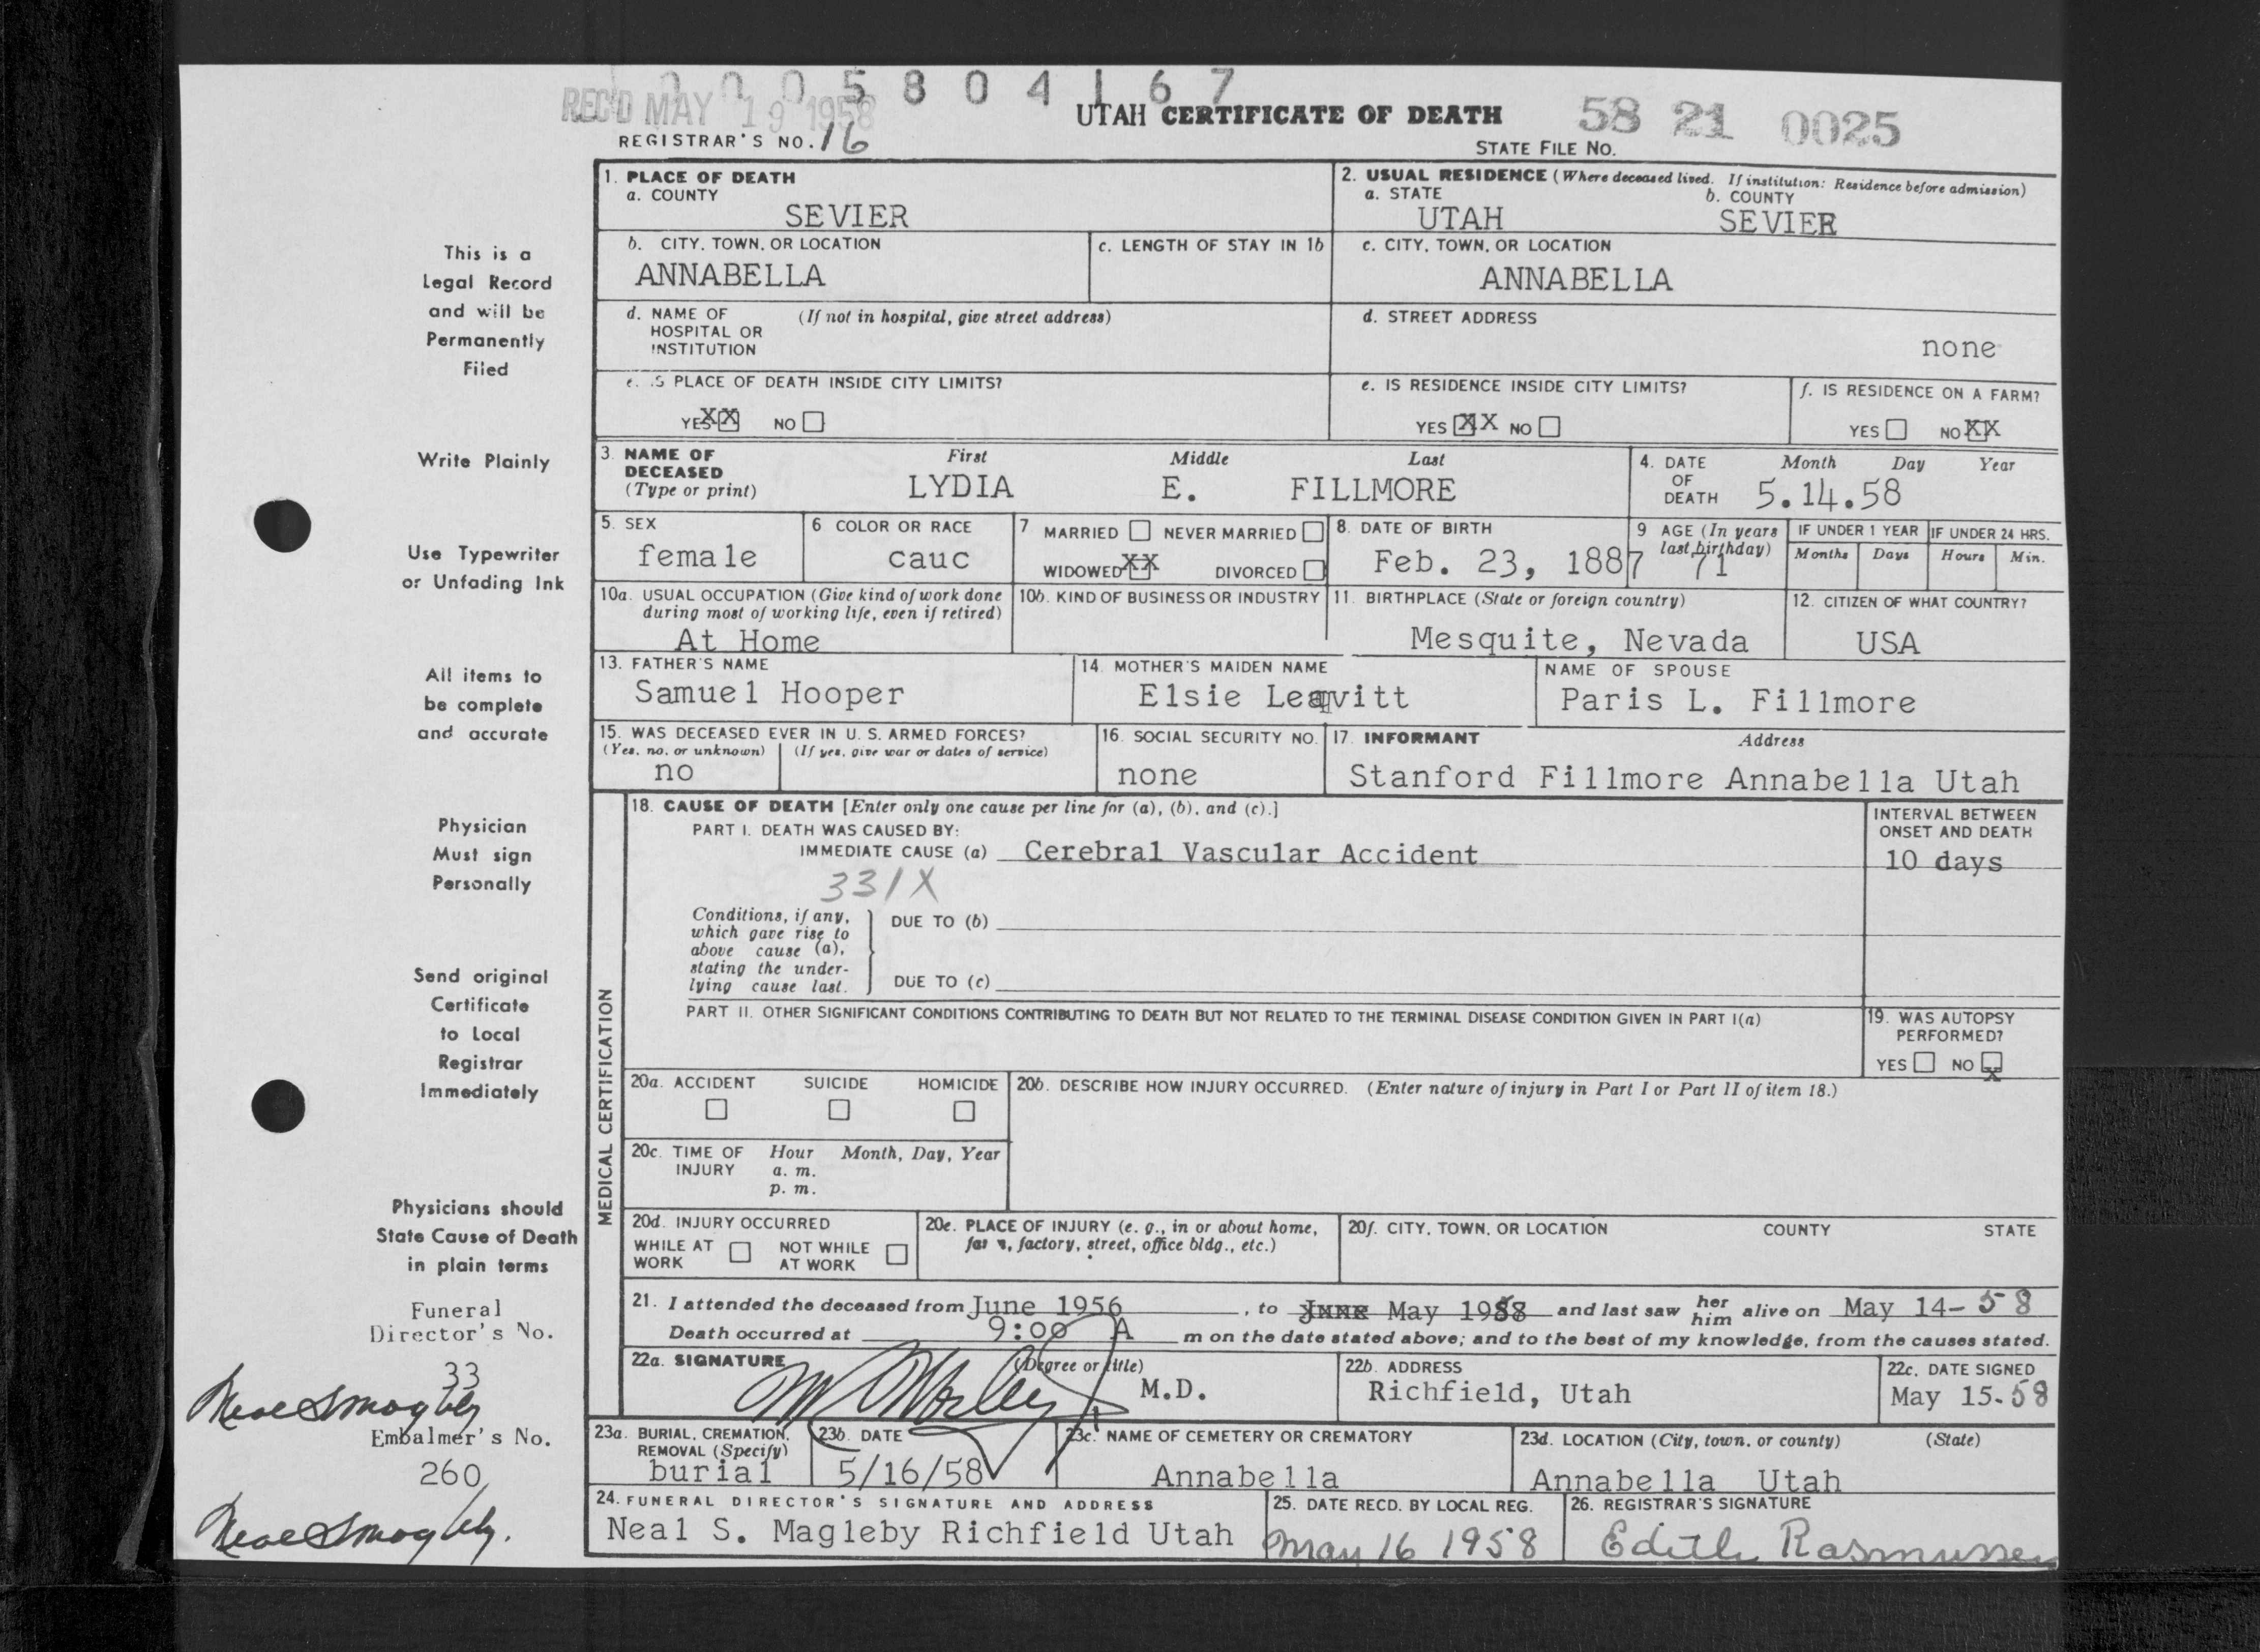 0 0 0 5 8 0 4 1 6 7
REC'D MAY 19 1958
UTAH CERTIFICATE OF DEATH
58 21 0025
REGISTRAR'S NO. 16
STATE FILE NO.
1. PLACE OF DEATH
a. COUNTY
SEVIER
2. USUAL RESIDENCE (Where deceased lived. If institution: Residence before admission)
a. STATE b. COUNTY
UTAH SEVIER
b. CITY, TOWN, OR LOCATION
ANNABELLA
c. LENGTH OF STAY IN 1b
c. CITY, TOWN, OR LOCATION
ANNABELLA
d. NAME OF (If not in hospital, give street address)
HOSPITAL OR
INSTITUTION
d. STREET ADDRESS
none
e. IS PLACE OF DEATH INSIDE CITY LIMITS?
YES XX NO
e. IS RESIDENCE INSIDE CITY LIMITS?
YES XX NO
f. IS RESIDENCE ON A FARM?
YES NO XX
3. NAME OF First Middle Last
DECEASED
(Type or print) LYDIA E. FILLMORE
4. DATE Month Day Year
OF
DEATH 5.14.58
5. SEX
female
6 COLOR OR RACE
cauc
7 MARRIED NEVER MARRIED
WIDOWED XX DIVORCED
8. DATE OF BIRTH
Feb. 23, 1887
9 AGE (In years
last birthday)
71
IF UNDER 1 YEAR IF UNDER 24 HRS.
Months Days Hours Min.
10a. USUAL OCCUPATION (Give kind of work done
during most of working life, even if retired)
At Home
10b. KIND OF BUSINESS OR INDUSTRY
11. BIRTHPLACE (State or foreign country)
Mesquite, Nevada
12. CITIZEN OF WHAT COUNTRY?
USA
13. FATHER'S NAME
Samuel Hooper
14. MOTHER'S MAIDEN NAME
Elsie Leavitt
NAME OF SPOUSE
Paris L. Fillmore
15. WAS DECEASED EVER IN U. S. ARMED FORCES?
(Yes, no, or unknown) (If yes, give war or dates of service)
no
16. SOCIAL SECURITY NO.
none
17. INFORMANT Address
Stanford Fillmore Annabella Utah
MEDICAL CERTIFICATION
18. CAUSE OF DEATH [Enter only one cause per line for (a), (b), and (c).]
PART I. DEATH WAS CAUSED BY:
IMMEDIATE CAUSE (a) Cerebral Vascular Accident
331X
INTERVAL BETWEEN
ONSET AND DEATH
10 days
Conditions, if any,
which gave rise to
above cause (a),
stating the under-
lying cause last.
DUE TO (b)
DUE TO (c)
PART II. OTHER SIGNIFICANT CONDITIONS CONTRIBUTING TO DEATH BUT NOT RELATED TO THE TERMINAL DISEASE CONDITION GIVEN IN PART I(a)
19. WAS AUTOPSY
PERFORMED?
YES NO X
20a. ACCIDENT SUICIDE HOMICIDE
20b. DESCRIBE HOW INJURY OCCURRED. (Enter nature of injury in Part I or Part II of item 18.)
20c. TIME OF Hour Month, Day, Year
INJURY a. m.
p. m.
20d. INJURY OCCURRED
WHILE AT NOT WHILE
WORK AT WORK
20e. PLACE OF INJURY (e. g., in or about home,
farm, factory, street, office bldg., etc.)
20f. CITY, TOWN, OR LOCATION COUNTY STATE
21. I attended the deceased from June 1956, to June May 1958 and last saw her him alive on May 14-58
Death occurred at 9:00 A m on the date stated above; and to the best of my knowledge, from the causes stated.
22a. SIGNATURE (Degree or title)
M.D.
22b. ADDRESS
Richfield, Utah
22c. DATE SIGNED
May 15-58
23a. BURIAL, CREMATION,
REMOVAL (Specify)
burial
23b. DATE
5/16/58
23c. NAME OF CEMETERY OR CREMATORY
Annabella
23d. LOCATION (City, town, or county) (State)
Annabella Utah
24. FUNERAL DIRECTOR'S SIGNATURE AND ADDRESS
Neal S. Magleby Richfield Utah
25. DATE RECD. BY LOCAL REG.
May 16 1958
26. REGISTRAR'S SIGNATURE
Edith Rasmussen
This is a
Legal Record
and will be
Permanently
Filed
Write Plainly
Use Typewriter
or Unfading Ink
All items to
be complete
and accurate
Physician
Must sign
Personally
Send original
Certificate
to Local
Registrar
Immediately
Physicians should
State Cause of Death
in plain terms
Funeral
Director's No.
33
Neal S Magleby
Embalmer's No.
260
Neal S Magleby.